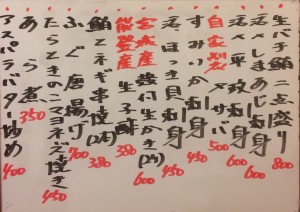 生バチ鮪二点盛り 800
活〆しまあじ刺身 600
活〆平政刺身 600
自家製〆サバ 500
すみいか刺身 450
活ほっき貝刺身 450
宮城産 殻付生かき(2ヶ) 600
能登産 生子酢 380
鮪とネギ串焼(2本) 380
ふぐ唐揚げ 700
たらときのこのマヨネーズ焼き 450
あら煮 350
アスパラバター炒め 400